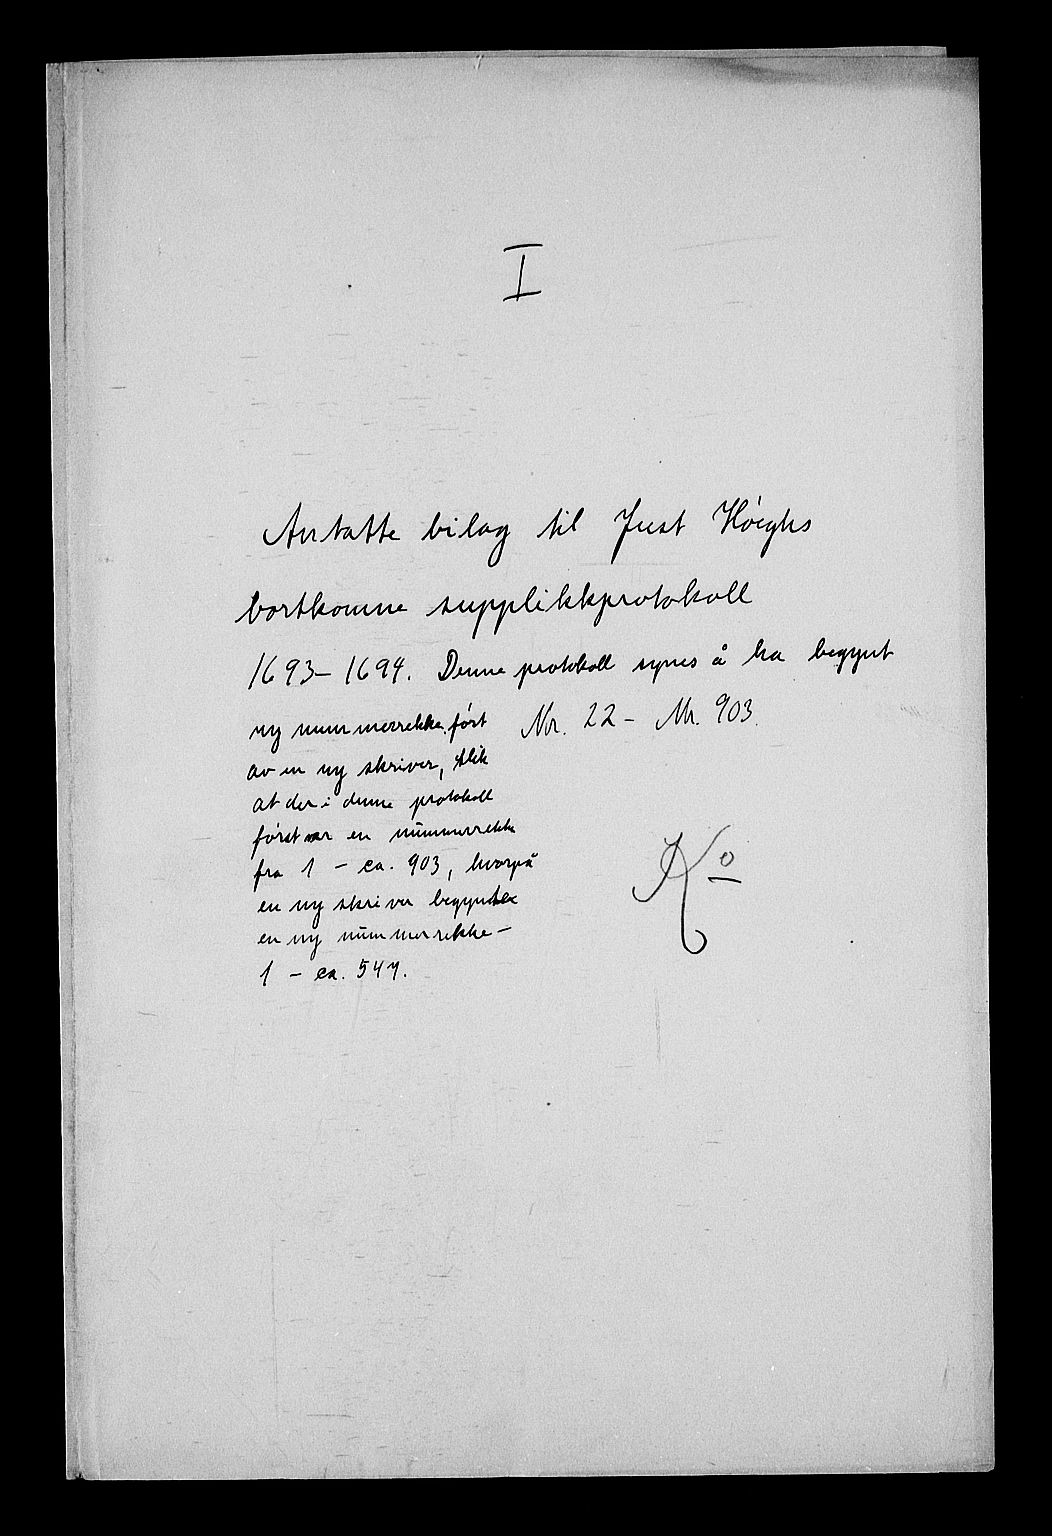 I
Antatte bilag til Just Høighs
bortkomne supplikkprotokoll
1693 – 1694. Denne protokoll synes å ha begynt
ny nummerrekke ført
av en ny skriver, slik
at der i denne protokoll
først var en nummerrekke
fra 1 – ca. 903, hvorpå
en ny skriver begynte
en ny nummerrekke –
1 – ca. 547.
Nr. 22 – Nr. 903.